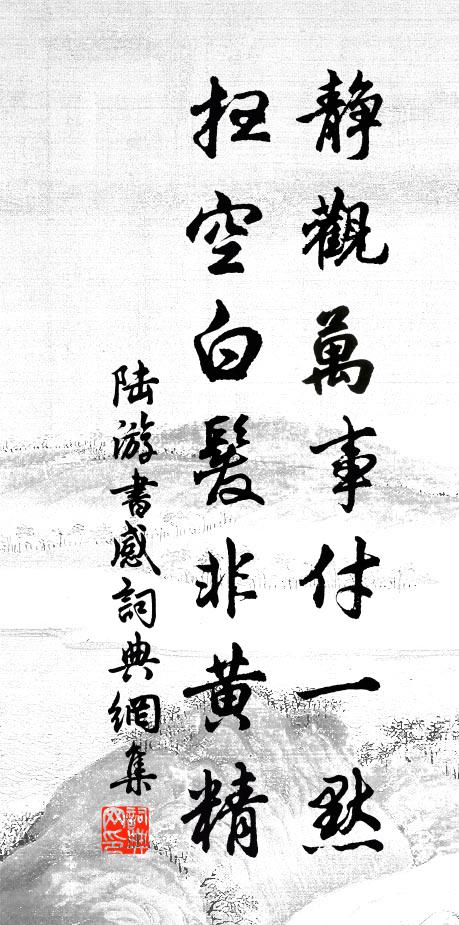 静觀萬事付一默
扭空白髮非黄精
陆游書感詞典網集